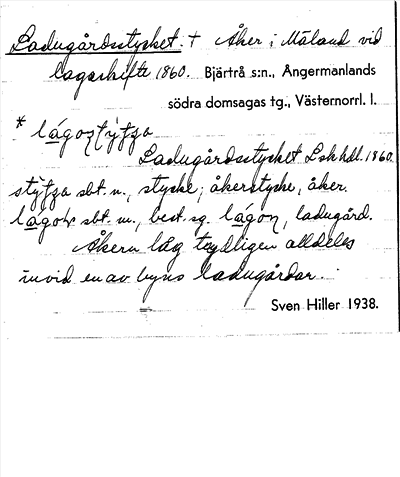 Ladugårdsstycket. † Åker i Måland vid
lagaskifte 1860. Bjärtrå s:n., Ångermanlands
södra domsagas tg., Västernorrl. l.
* lágon
Ladugårdsstycket Lskhdl. 1860.
sbt. n., stycke; åkerstycke, åker.
sbt. m., best. sg. lágon, ladugård.
Åkern låg tydligen alldeles
invid en av byns ladugårdar.
Sven Hiller 1938.